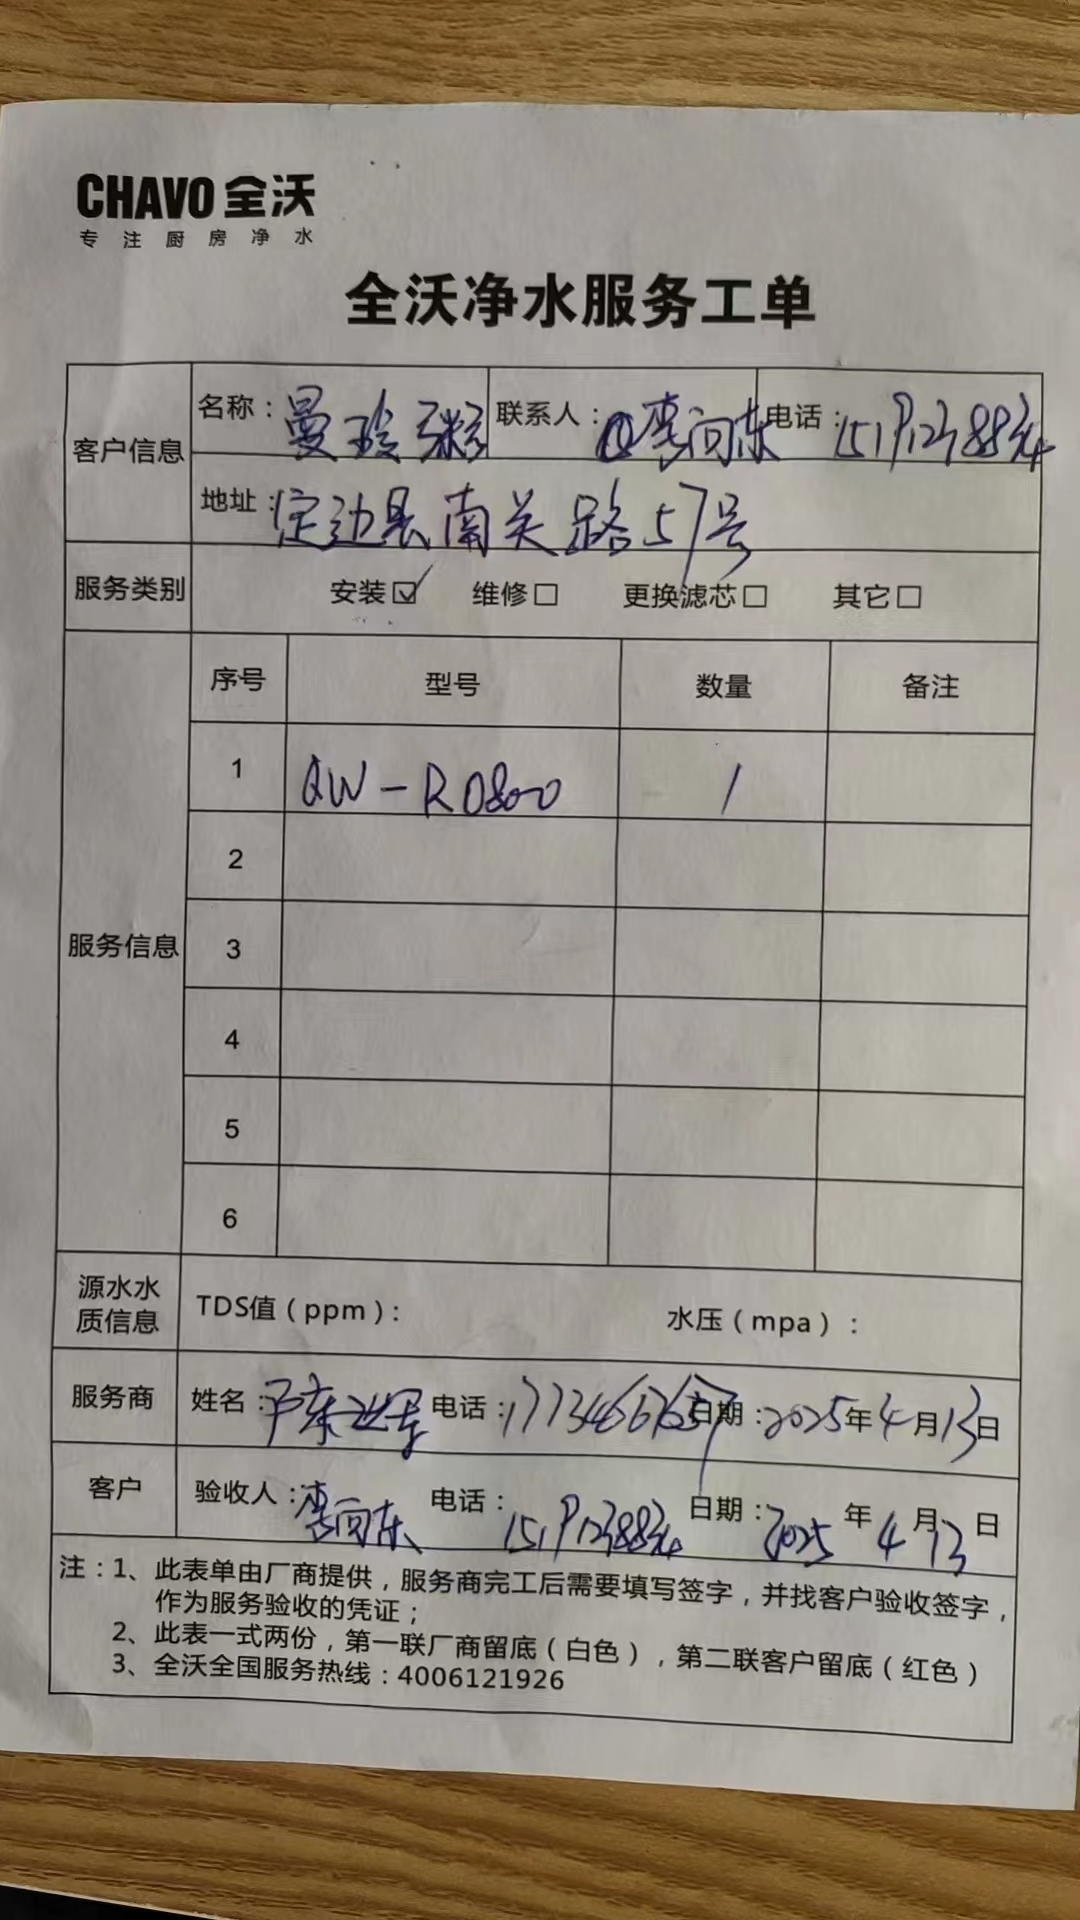 CHAVO 全沃
专注厨房净水
全沃净水服务工单
客户信息 名称：曼玲粥 联系人：李向东 电话：
地址：定边县南关路57号
服务类别 安装☑ 维修□ 更换滤芯□ 其它□
服务信息 序号 型号 数量 备注
1 QW-RO800 1
2
3
4
5
6
源水水质信息 TDS值（ppm）： 水压（mpa）：
服务商 姓名： 电话： 日期：2025年4月13日
客户 验收人：李向东 电话： 日期：2025年4月13日
注：1、此表单由厂商提供，服务商完工后需要填写签字，并找客户验收签字，
作为服务验收的凭证；
2、此表一式两份，第一联厂商留底（白色），第二联客户留底（红色）
3、全沃全国服务热线：4006121926